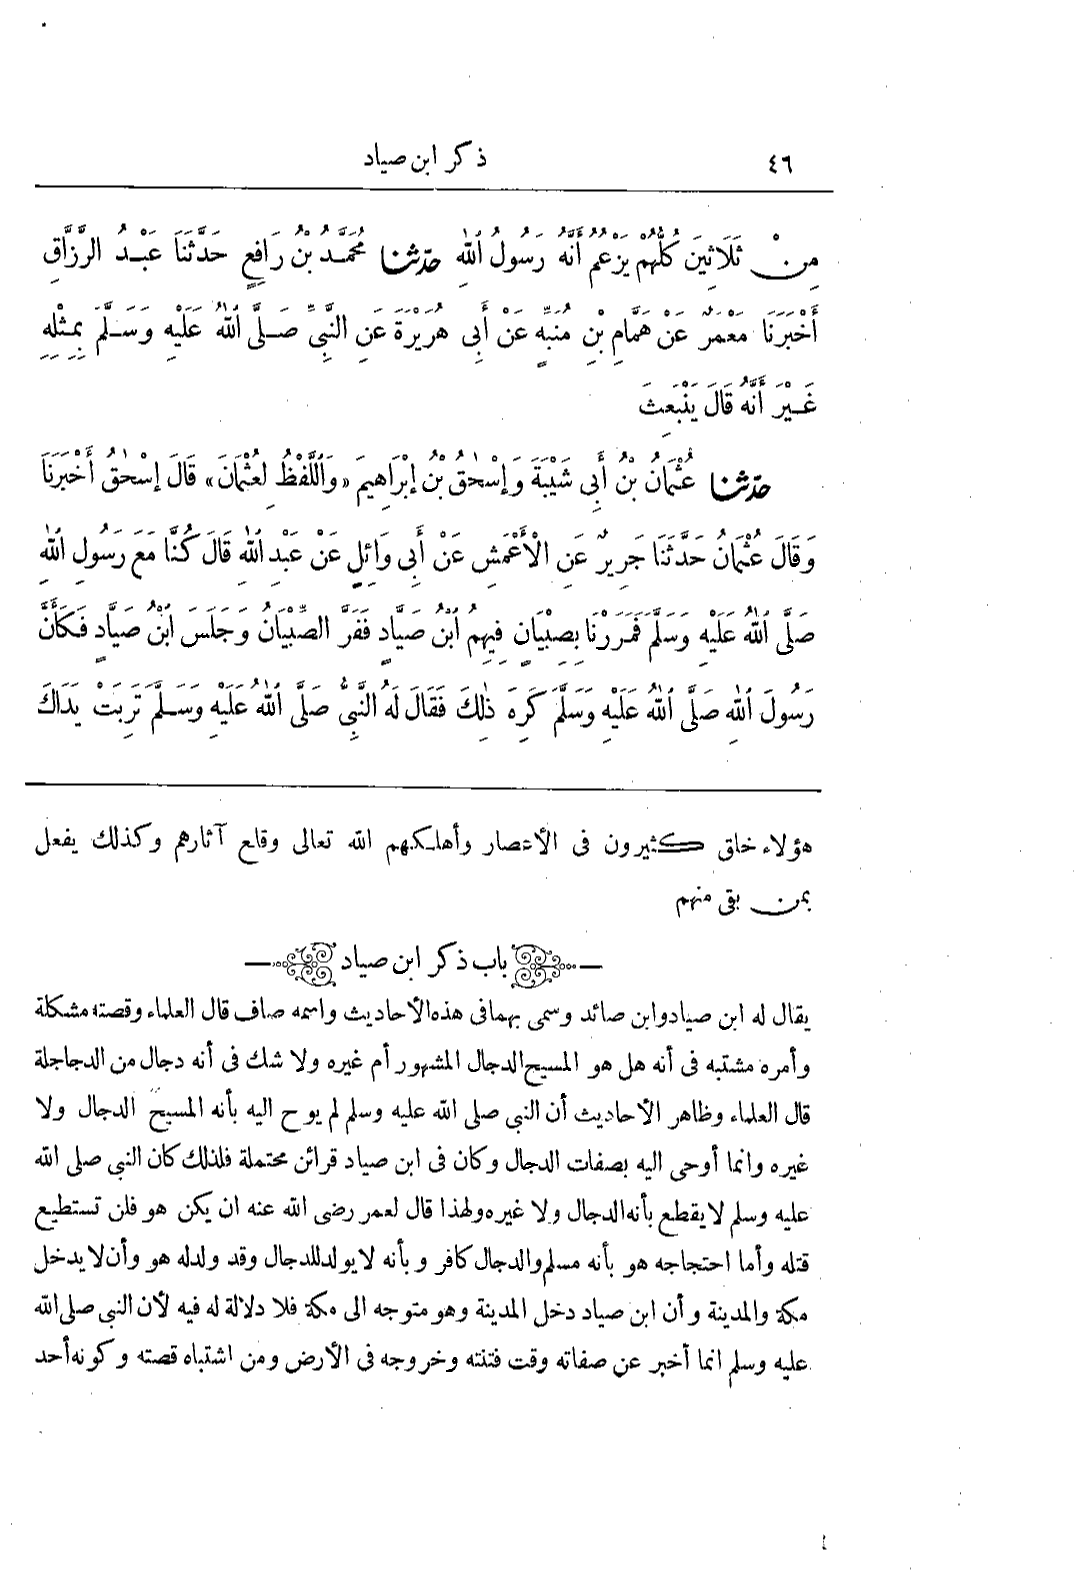 ٤٦ ذكر ابن صياد
مِنْ ثَلَاثِينَ كُلُّهُمْ يَزْعُمُ أَنَّهُ رَسُولُ اللهِ حدثنا مُحَمَّدُ بْنُ رَافِعٍ حَدَّثَنَا عَبْدُ الرَّزَّاقِ
أَخْبَرَنَا مَعْمَرٌ عَنْ هَمَّامِ بْنِ مُنَبِّهٍ عَنْ أَبِى هُرَيْرَةَ عَنِ النَّبِىِّ صَلَّى اللهُ عَلَيْهِ وَسَلَّمَ بِمِثْلِهِ
غَيْرَ أَنَّهُ قَالَ يَنْبَعِثَ
حدثنا عُثْمَانُ بْنُ أَبِى شَيْبَةَ وَإِسْحٰقُ بْنُ إِبْرَاهِيمَ «وَاللَّفْظُ لِعُثْمَانَ» قَالَ إِسْحٰقُ أَخْبَرَنَا
وَقَالَ عُثْمَانُ حَدَّثَنَا جَرِيرٌ عَنِ الْأَعْمَشِ عَنْ أَبِى وَائِلٍ عَنْ عَبْدِ اللهِ قَالَ كُنَّا مَعَ رَسُولِ اللهِ
صَلَّى اللهُ عَلَيْهِ وَسَلَّمَ فَمَرَرْنَا بِصِبْيَانٍ فِيهِمُ ابْنُ صَيَّادٍ فَفَرَّ الصِّبْيَانُ وَجَلَسَ ابْنُ صَيَّادٍ فَكَأَنَّ
رَسُولَ اللهِ صَلَّى اللهُ عَلَيْهِ وَسَلَّمَ كَرِهَ ذٰلِكَ فَقَالَ لَهُ النَّبِىُّ صَلَّى اللهُ عَلَيْهِ وَسَلَّمَ تَرِبَتْ يَدَاكَ
هؤلاء خلق كثيرون فى الأعصار وأهلكهم الله تعالى وقلع آثارهم وكذلك يفعل
بمن بقى منهم
باب ذكر ابن صياد
يقال له ابن صياد وابن صائد وسمى بهما فى هذه الأحاديث واسمه صاف قال العلماء وقصته مشكلة
وأمره مشتبه فى أنه هل هو المسيح الدجال المشهور أم غيره ولا شك فى أنه دجال من الدجاجلة
قال العلماء وظاهر الأحاديث أن النبي صلى الله عليه وسلم لم يوح اليه بأنه المسيح الدجال ولا
غيره وانما أوحى اليه بصفات الدجال وكان فى ابن صياد قرائن محتملة فلذلك كان النبي صلى الله
عليه وسلم لا يقطع بأنه الدجال ولا غيره ولهذا قال لعمر رضى الله عنه ان يكن هو فلن تستطيع
قتله وأما احتجاجه هو بأنه مسلم والدجال كافر وبأنه لا يولد للدجال وقد ولد له هو وأن لا يدخل
مكة والمدينة وأن ابن صياد دخل المدينة وهو متوجه الى مكة فلا دلالة له فيه لأن النبي صلى الله
عليه وسلم انما أخبر عن صفاته وقت فتنته وخروجه فى الأرض ومن اشتباه قصته وكونه أحد